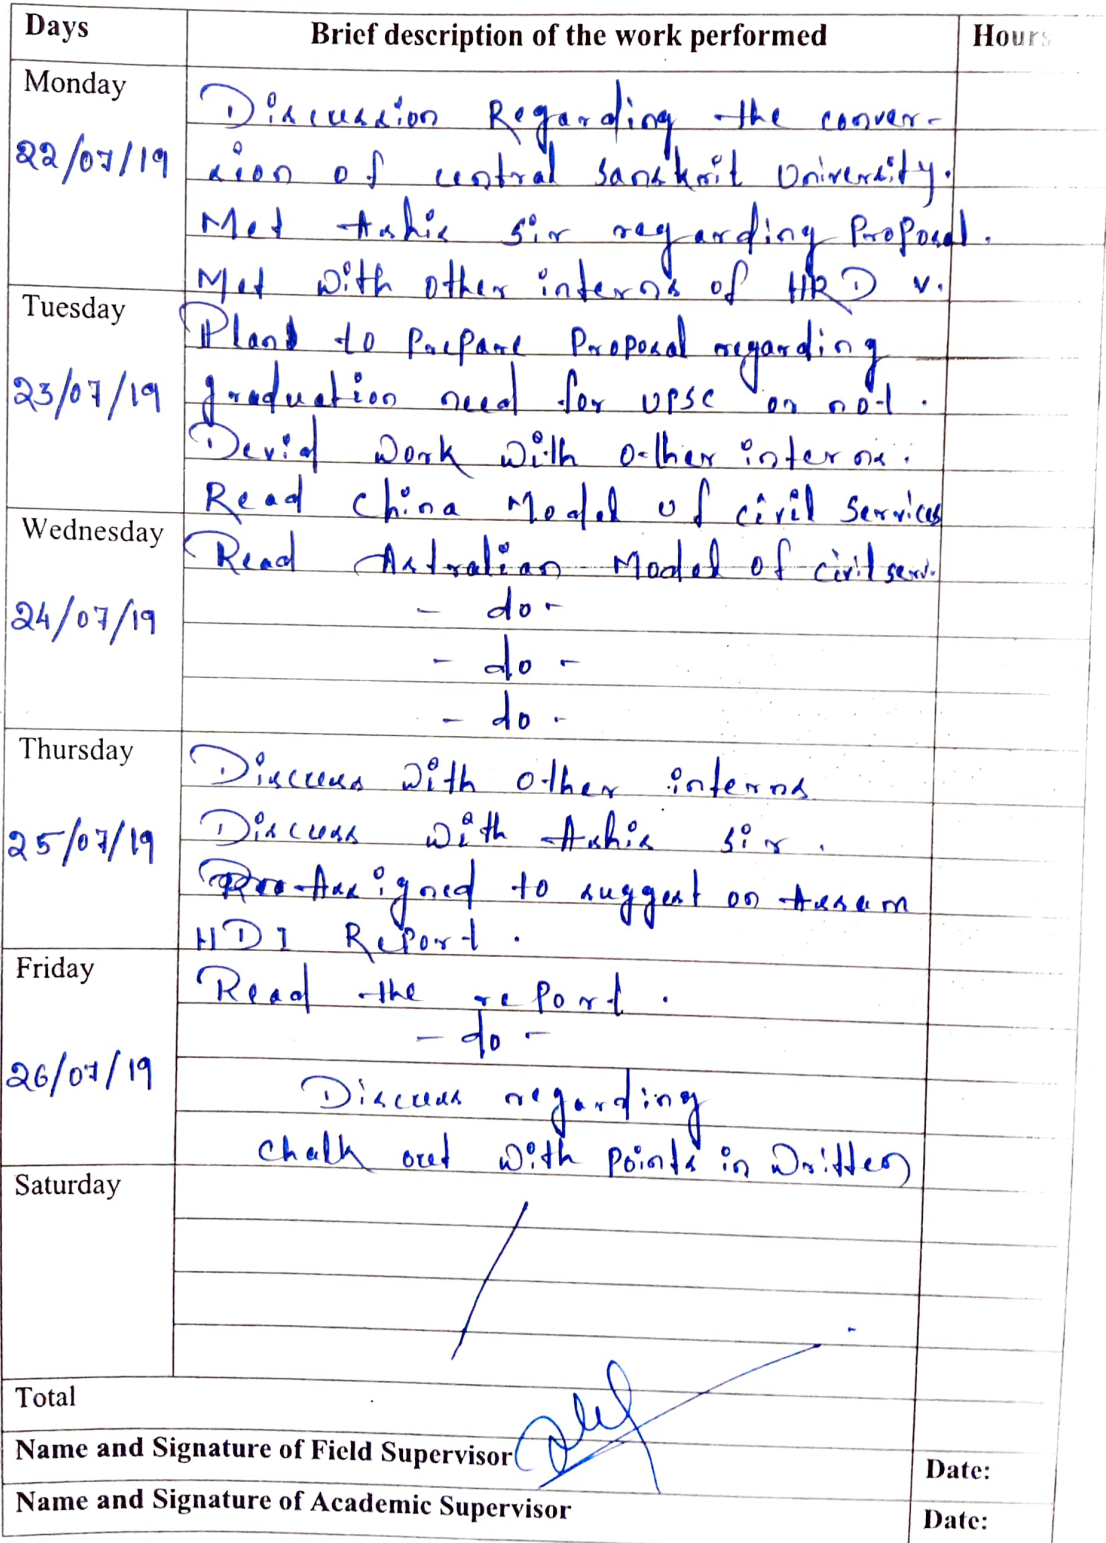 Days Brief description of the work performed Hours
Monday
22/07/19
Discussion Regarding the conver-
sion of central Sanskrit University.
Met Ashis Sir regarding Proposal.
Met with other interns of HRD v.
Tuesday
23/07/19
Pland to Prepare Proposal regarding
graduation need for UPSC or not.
Devid work with other interns.
Read China Model of civil Services
Wednesday
24/07/19
Read Astralian Model of civil serv.
- do -
- do -
- do -
Thursday
25/07/19
Discuss with other interns
Discuss with Ashis Sir.
Assigned to suggest on Assam
HDI Report.
Friday
26/07/19
Read the report.
- do -
Discuss regarding
chalk out with points in written
Saturday
Total
Name and Signature of Field Supervisor Date:
Name and Signature of Academic Supervisor Date: